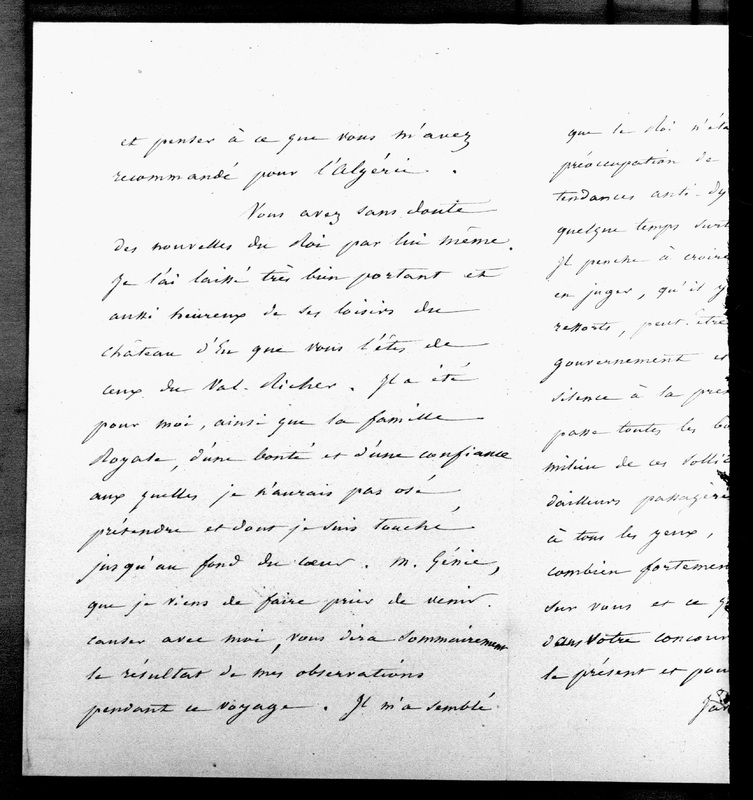 et penser à ce que vous m'avez
recommandé pour l'Algérie.
Vous avez sans doute
des nouvelles du Roi par lui même.
Je l'ai laissé très bien portant et
aussi heureux de ses loisirs du
château d'Eu que vous l'êtes de
ceux du Val-Richer. Il a été
pour moi, ainsi que la famille
Royale, d'une bonté et d'une confiance
aux quelles je n'aurais pas osé
prétendre et dont je suis touché
jusqu'au fond du cœur. M. Génie,
que je viens de faire prier de venir
causer avec moi, vous dira sommairement
le résultat de mes observations
pendant ce voyage. Il m'a semblé
que le Roi n'éta
préoccupation de
tendances anti-dy
quelque temps surt
Il penche à croire
en juger, qu'il y
ressorts, peut-être
gouvernement et
silence à la pres
passe toutes les bo
milieu de ces solli
d'ailleurs passagère
à tous les yeux,
combien fortemen
sur vous et ce q
dans votre concour
le présent et pou